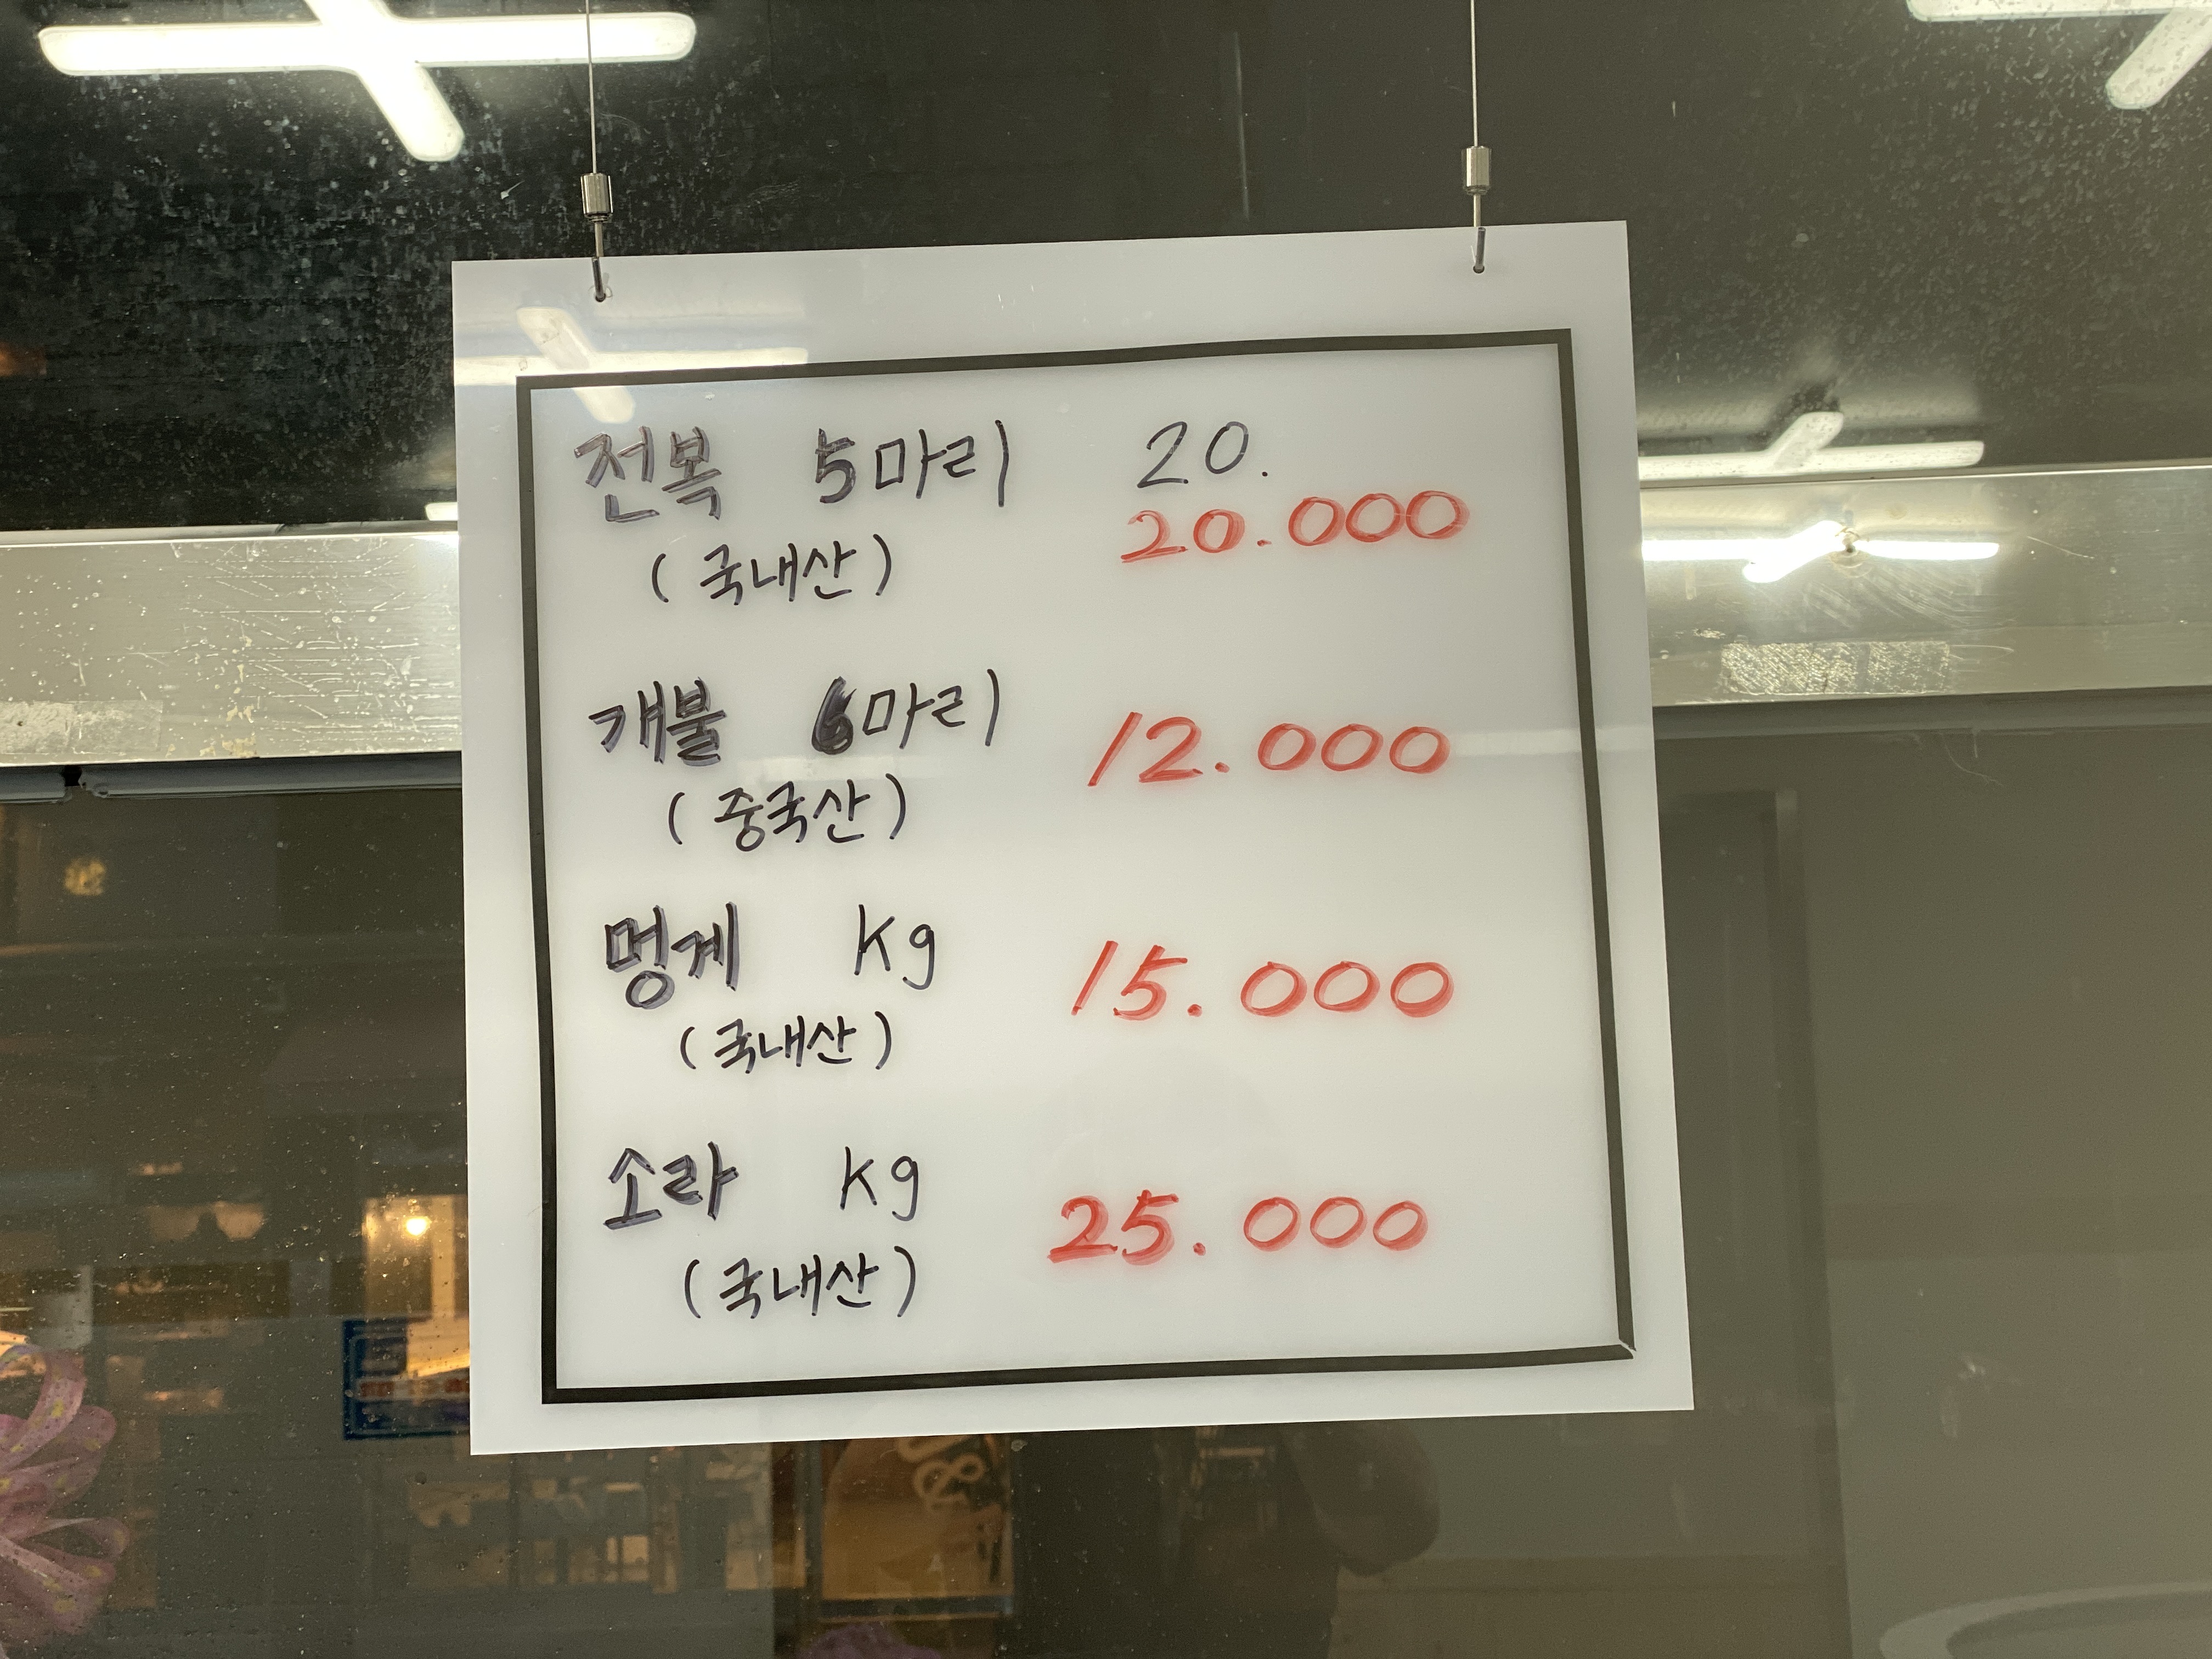 전복 5마리 20.
20.000
(국내산)
개불 6마리 12.000
(중국산)
멍게 kg 15.000
(국내산)
소라 kg 25.000
(국내산)